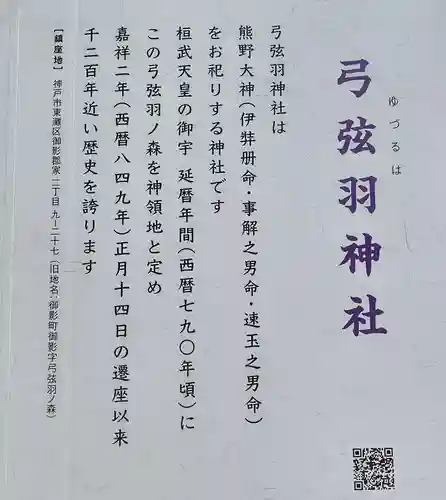 弓弦羽神社
ゆづるは
弓弦羽神社は
熊野大神(伊弉册命・事解之男命・速玉之男命)
をお祀りする神社です
桓武天皇の御宇 延暦年間(西暦七九〇年頃)に
この弓弦羽ノ森を神領地と定め
嘉祥二年(西暦八四九年)正月十四日の遷座以来
千二百年近い歴史を誇ります
【鎮座地】 神戸市東灘区御影郡家二丁目 九ー二十七(旧地名:御影町御影字弓弦羽ノ森)